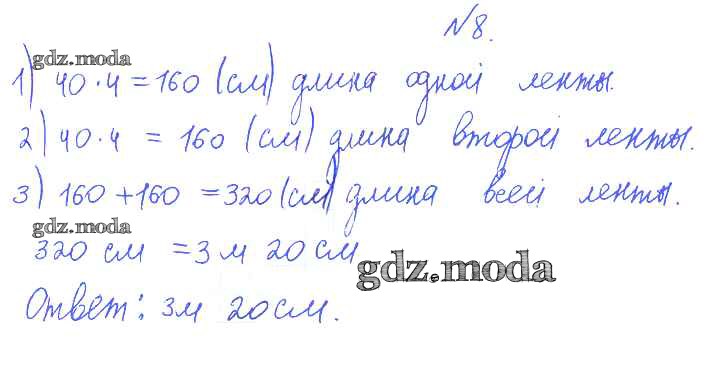 №8.
gdz.moda
1) 40·4=160 (см) длина одной ленты.
2) 40·4 = 160 (см) длина второй ленты.
3) 160+160 =320 (см) длина всей ленты.
gdz.moda
320 см =3 м 20 см
gdz.moda
Ответ: 3м 20см.